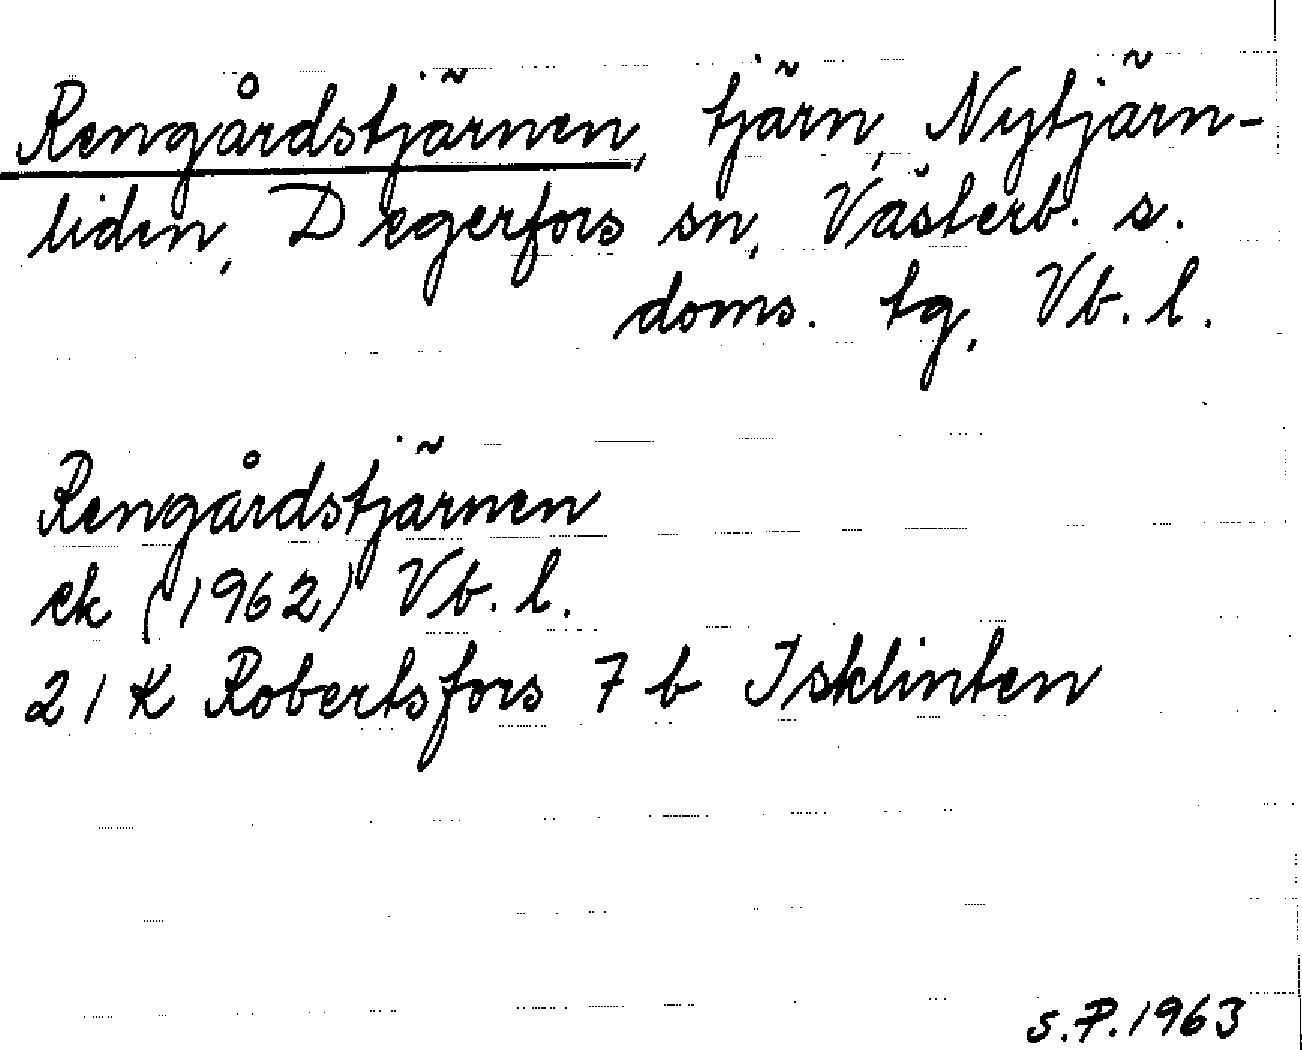 Rengårdstjärnen, tjärn, Nytjärn-
liden, Degerfors sn, Västerb. s.
doms. tg, Vb. l.
Rengårdstjärnen
ek (1962) Vb. l.
21 K Robertsfors 7 b Isklinten
S.P. 1963